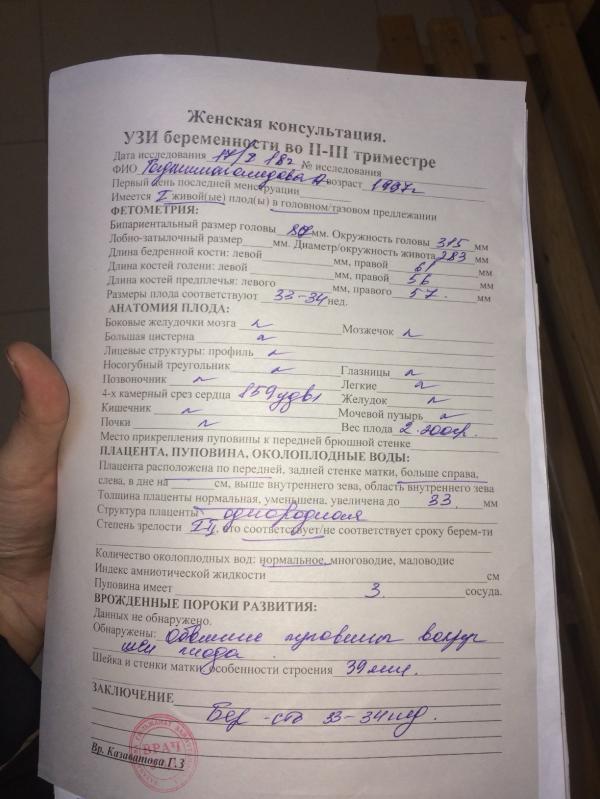 Женская консультация.
УЗИ беременности во II-III триместре
Дата исследования 17/X 18г № исследования
ФИО возраст 1997г
Первый день последней менструации
Имеется I живой(ые) плод(ы) в головном/тазовом предлежании
ФЕТОМЕТРИЯ:
Бипариентальный размер головы мм. Окружность головы 315 мм
Лобно-затылочный размер мм. Диаметр/окружность живота 283 мм
Длина бедренной кости: левой мм, правой 61 мм
Длина костей голени: левой мм, правой 56 мм
Длина костей предплечья: левого мм, правого 57. мм
Размеры плода соответствуют 33-34 нед.
АНАТОМИЯ ПЛОДА:
Боковые желудочки мозга Мозжечок
Большая цистерна
Лицевые структуры: профиль
Носогубный треугольник Глазницы
Позвоночник Легкие
4-х камерный срез сердца 159 уд Желудок
Кишечник Мочевой пузырь
Почки Вес плода 2.200гр.
Место прикрепления пуповины к передней брюшной стенке
ПЛАЦЕНТА, ПУПОВИНА, ОКОЛОПЛОДНЫЕ ВОДЫ:
Плацента расположена по передней, задней стенке матки, больше справа,
слева, в дне на см, выше внутреннего зева, область внутреннего зева
Толщина плаценты нормальная, уменьшена, увеличена до 33. мм
Структура плаценты однородная
Степень зрелости II, что соответствует/не соответствует сроку берем-ти
Количество околоплодных вод: нормальное, многоводие, маловодие
Индекс амниотической жидкости см
Пуповина имеет 3 сосуда.
ВРОЖДЕННЫЕ ПОРОКИ РАЗВИТИЯ:
Данных не обнаружено.
Обнаружены: Обвитие пуповины вокруг
шеи плода.
Шейка и стенки матки, особенности строения 39мм.
ЗАКЛЮЧЕНИЕ
Бер-сть 33-34нед.
ВРАЧ
Вр. Казаватова Г.З